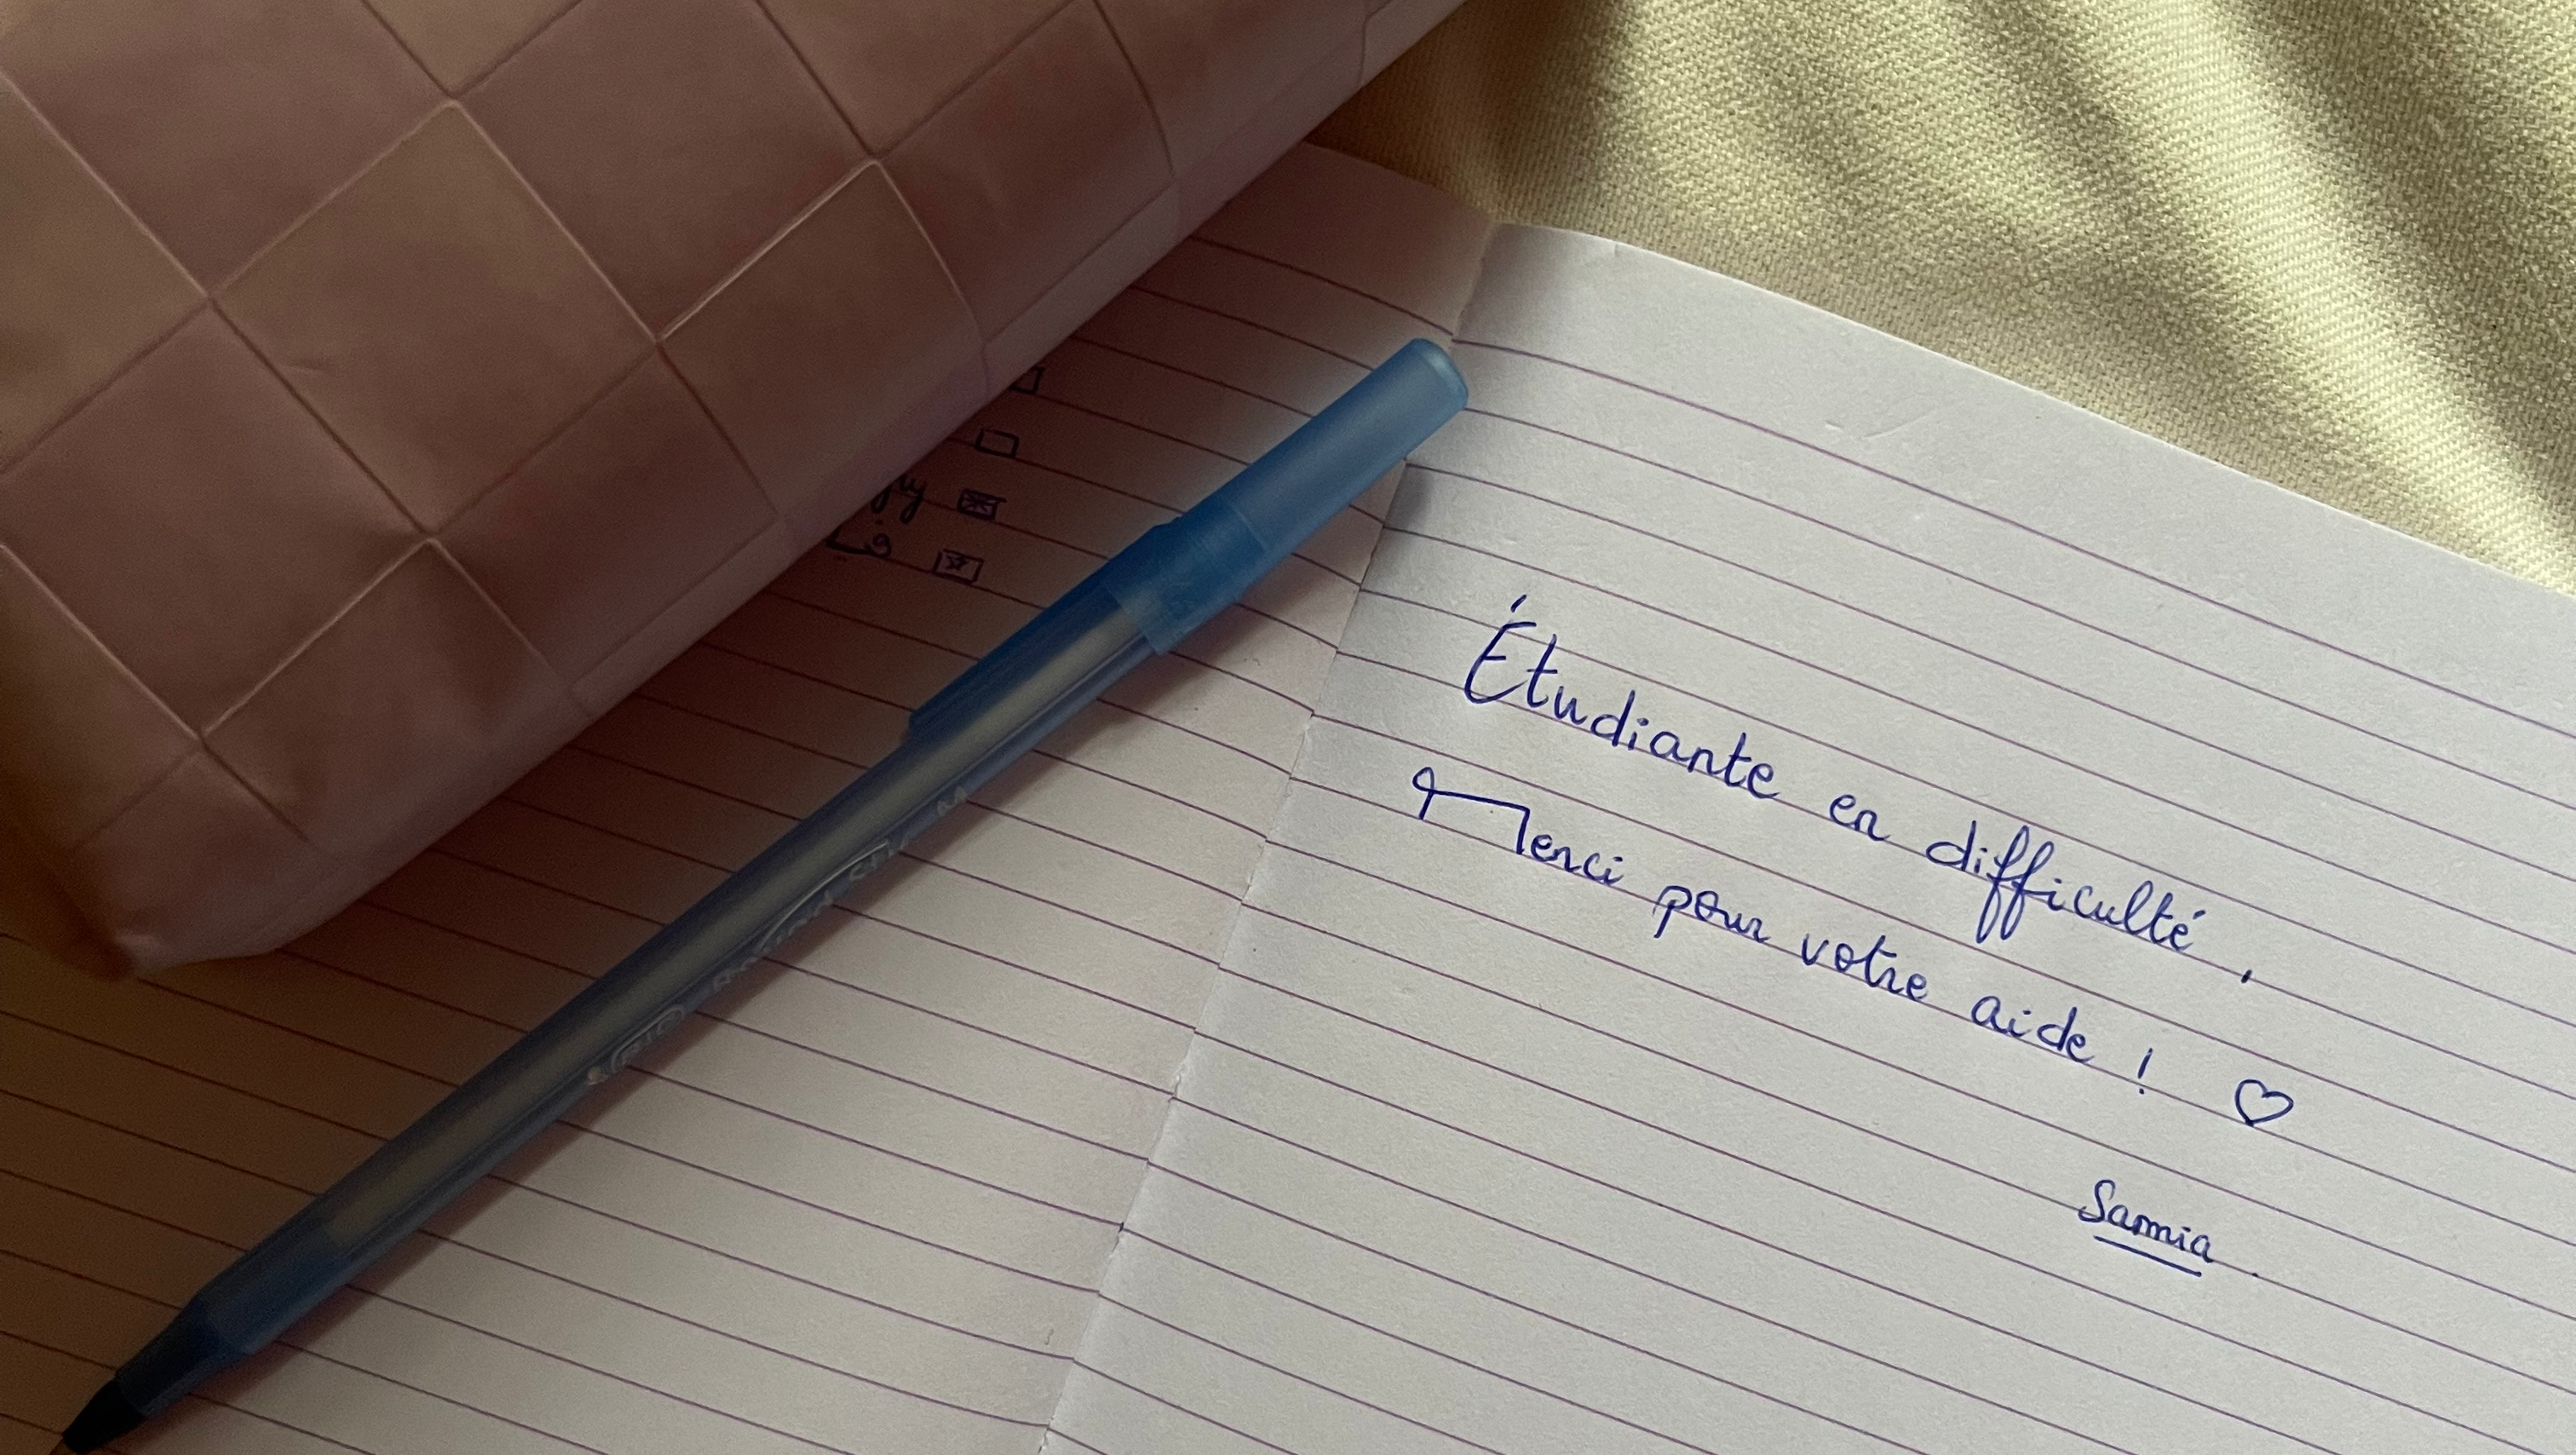 Étudiante en difficulté,
Merci pour votre aide ! ♡
Samia.